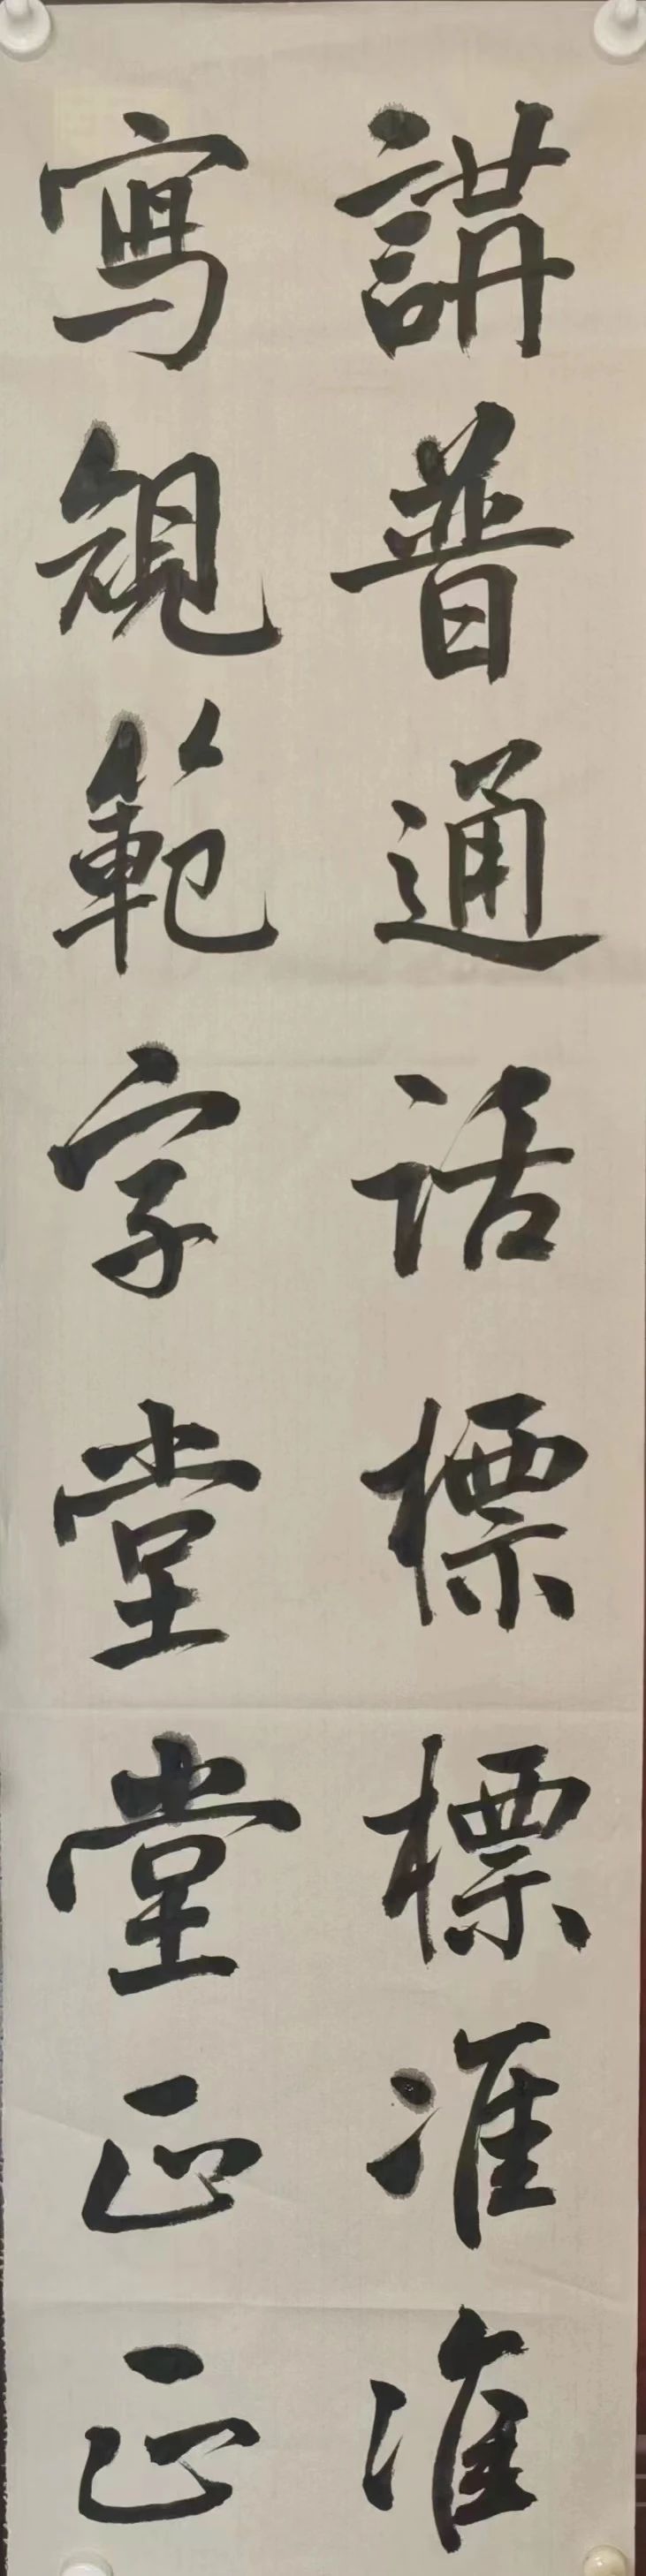 講普通話標標准准
寫規範字堂堂正正